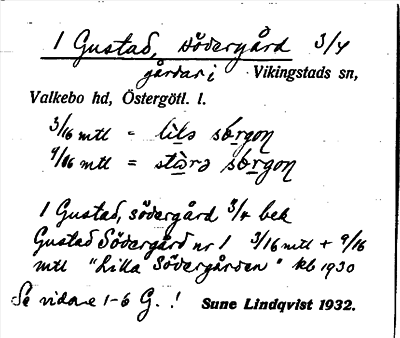 1 Gustad, södergård 3/4
gårdar i Vikingstads sn,
Valkebo hd, Östergötl. l.
3/16 mtl = lila sørgoṇ
9/16 mtl = stòrə sørgoṇ
1 Gustad, södergård 3/4 bek
Gustad Södergård nr 1 3/16 mtl + 9/16
mtl "Lilla Södergården" kb 1930
Se vidare 1-6 G. ! Sune Lindqvist 1932.